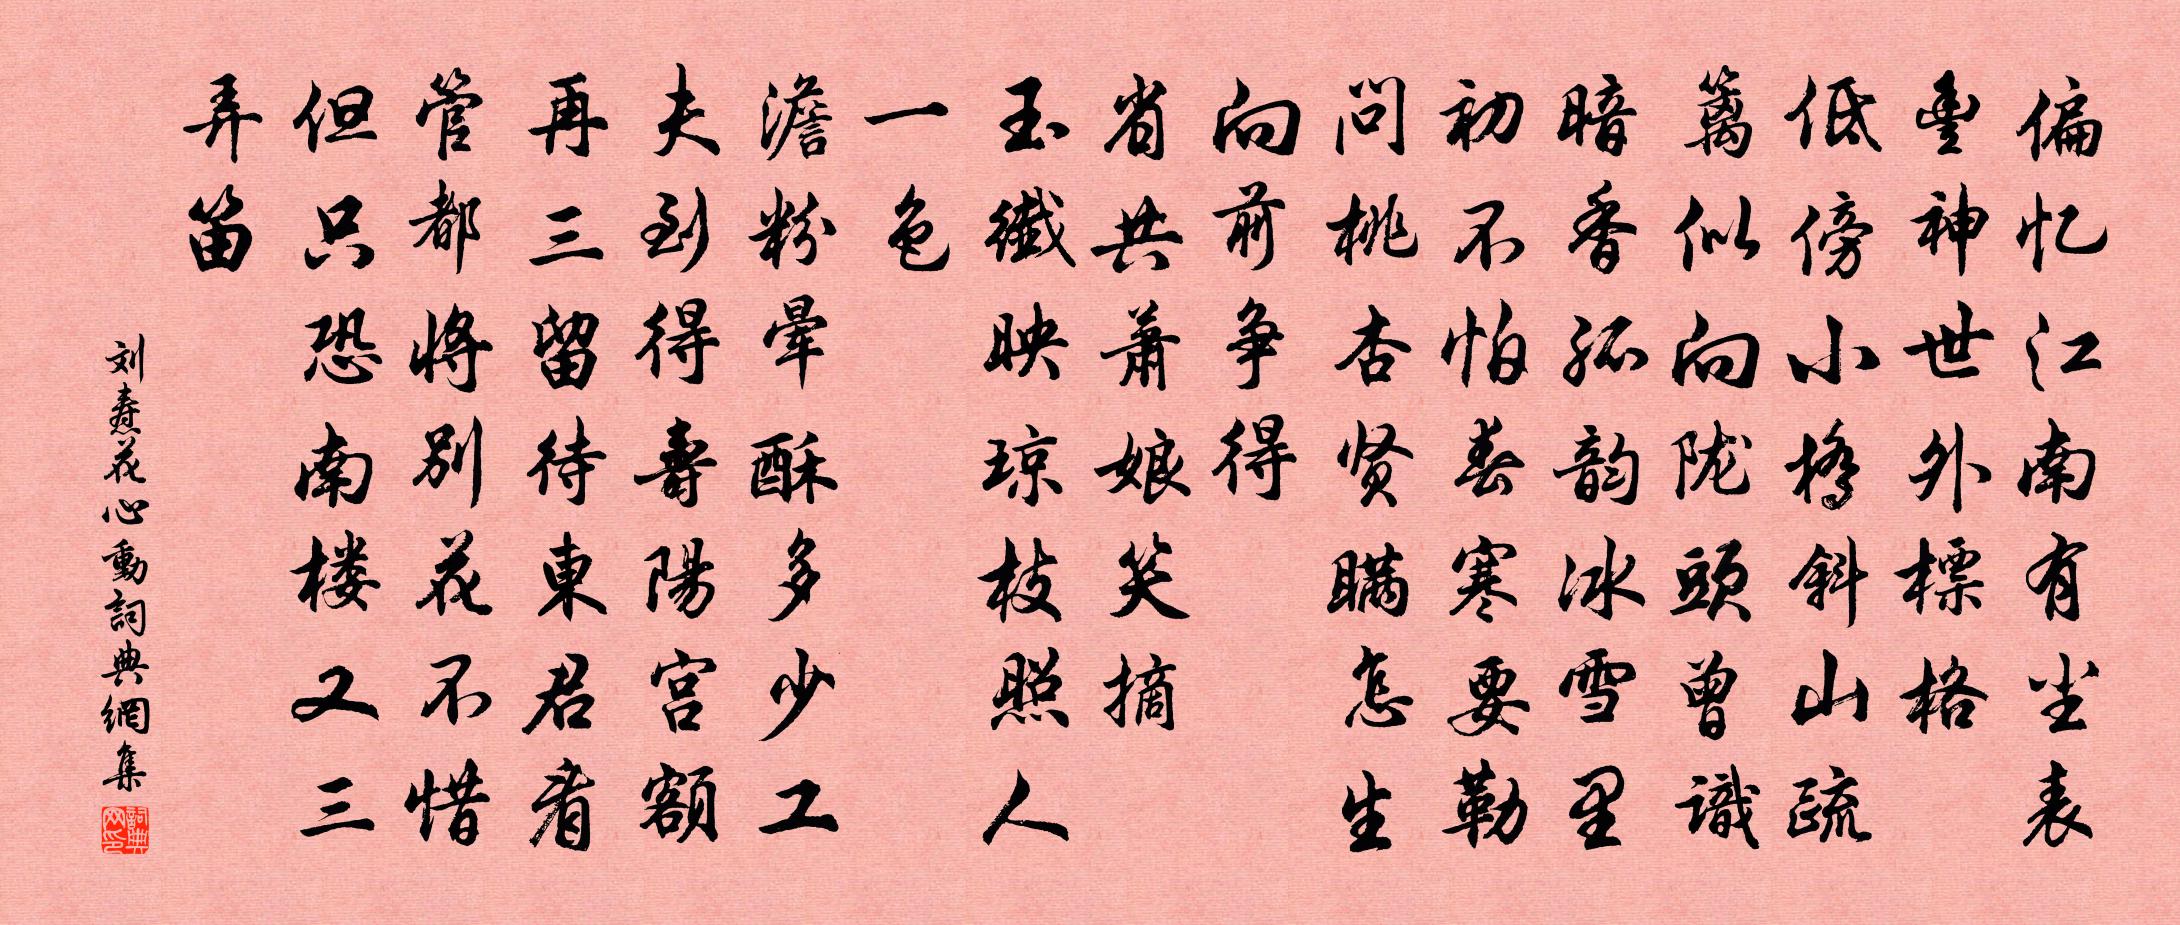 偏忆江南有尘表
豊神世外標格
低傍小橋斜山疏
篱似向陇頭曾識
暗香孤韵冰雪里
初不怕春寒要勒
问桃杏贤瞞怎生
向前争得
省共萧娘笑摘
玉纖映琼枝照人
一色
澹粉晕酥多少工
夫到得壽陽宫额
再三留待東君看
管都将别花不惜
但只恐南楼又三
弄笛
刘焘花心動詞典網集
詞典网印